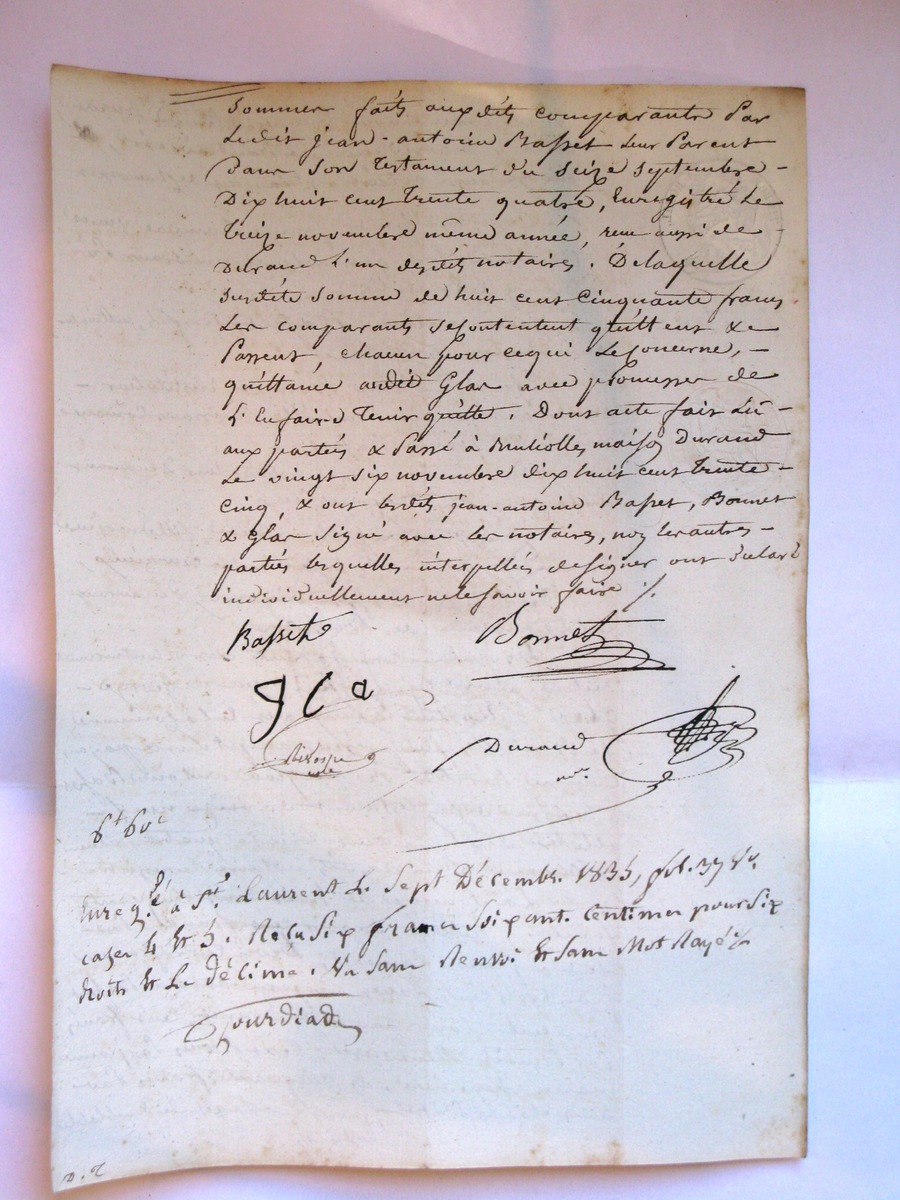 Sommes faits auxdits comparants Par
Ledit jean-antoine Basset Leur Parent
Dans Son Testament du Seize Septembre -
Dix huit cent trente quatre, Enregistré Le
treize novembre même année, reçu aussi de -
Durand L'un desdits notaires. De laquelle
Susdite Somme de huit cent cinquante francs
Les comparants se contentent quittent &
Passent, chacun pour ce qui Le Concerne, -
quittance audit Glas avec promesses de
L'En faire Tenir quitte. Dont acte fait Lû -
aux parties & Passé à maison Durand
Le vingt six novembre dix huit cent trente -
cinq, & ont lesdits jean-antoine Basset, Bonnet
& Glas Signé avec les notaires, non les autres -
parties lesquelles interpellées de Signer ont déclaré
individuellement ne le Savoir faire /.
Basset
Bonnet
gla
Durand
nre
6f 60c
Enregté à St Laurent Le Sept Décembre 1835, fol. 37 Vo.
cases 4 & 5. Reçu Six francs Soixante Centimes pour Six
droits & Le Décime. Vu Sans Renvoi & Sans Mot Rayé /.